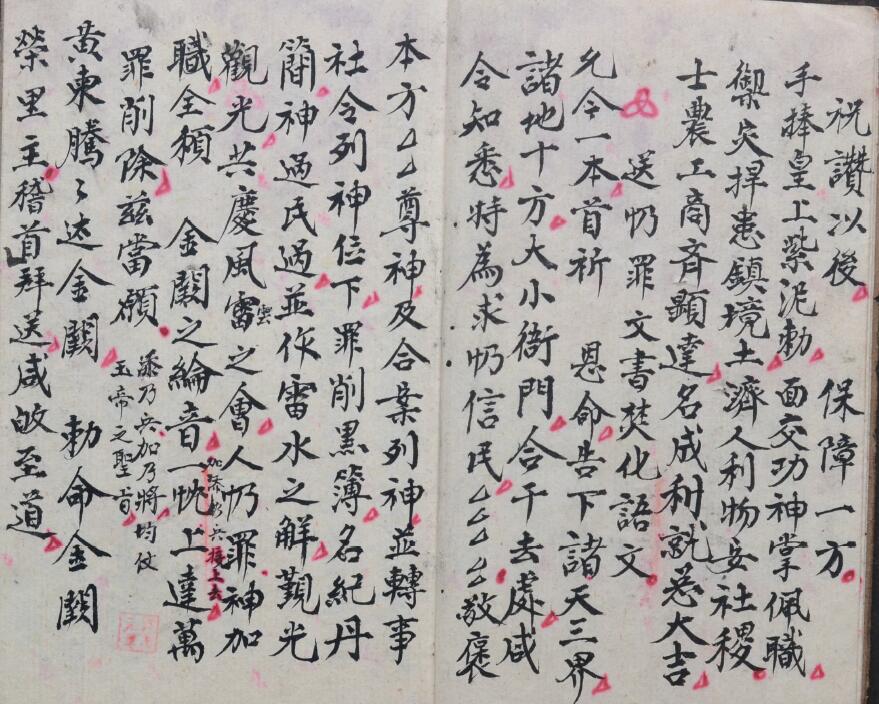 祝讚以後 保障一方
手捧皇上紫泥勅 面交功神掌佩職
禦灾捍患鎮境土 濟人利物安社稷
士農工商斉顯達 名成利就总大吉
送忛罪文書焚化語文
允今一本首祈 恩命告下諸天三界
諸地十方大小衙門合干去處咸
令知悉特為求忛信民厶厶厶厶敬褒
本方厶厶尊神及合案列神並轉事
社令列神位下罪削黑簿名紀丹
簡神過民過並作雷水之解覲光
觀光共慶風雷雲之會人忛罪神加
職全頼 金闕之綸音一忱上達萬
罪削除茲當願
添乃兵加乃將均仗
玉帝之聖旨
加添彩兵接上去
黃東騰々达金闕 勅命金闕
榮里主稽首拜送咸皈至道